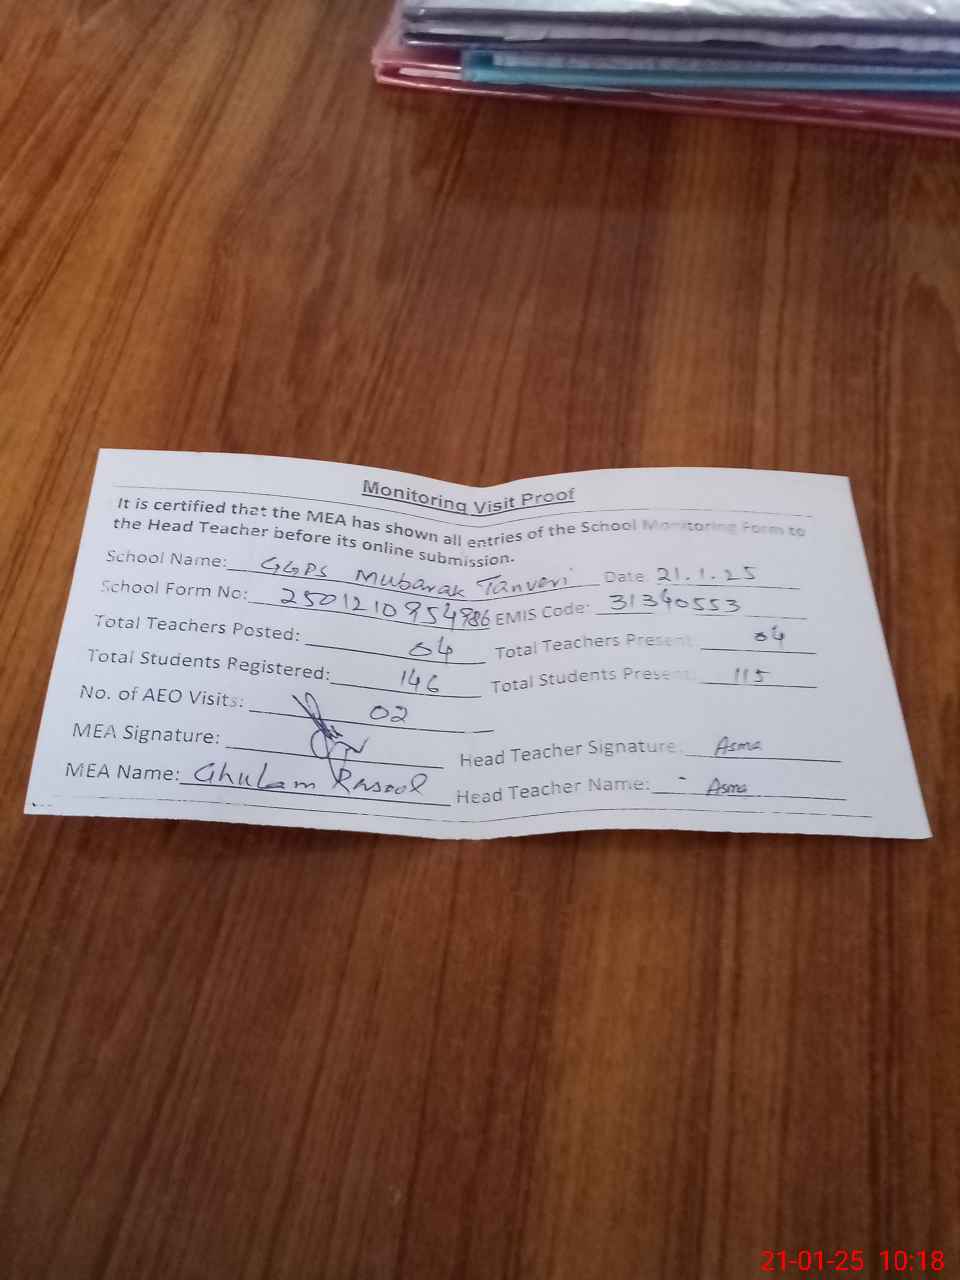 Monitoring Visit Proof
It is certified that the MEA has shown all entries of the School Monitoring Form to
the Head Teacher before its online submission.
School Name: GGPS Mubarak Tanveri Date: 21.1.25
School Form No: 2501210954986 EMIS Code: 31340553
Total Teachers Posted: 04 Total Teachers Present: 04
Total Students Registered: 146 Total Students Present: 115
No. of AEO Visits: 02
MEA Signature: Head Teacher Signature: Asma
MEA Name: Ghulam Rasool Head Teacher Name: Asma
21-01-25 10:18